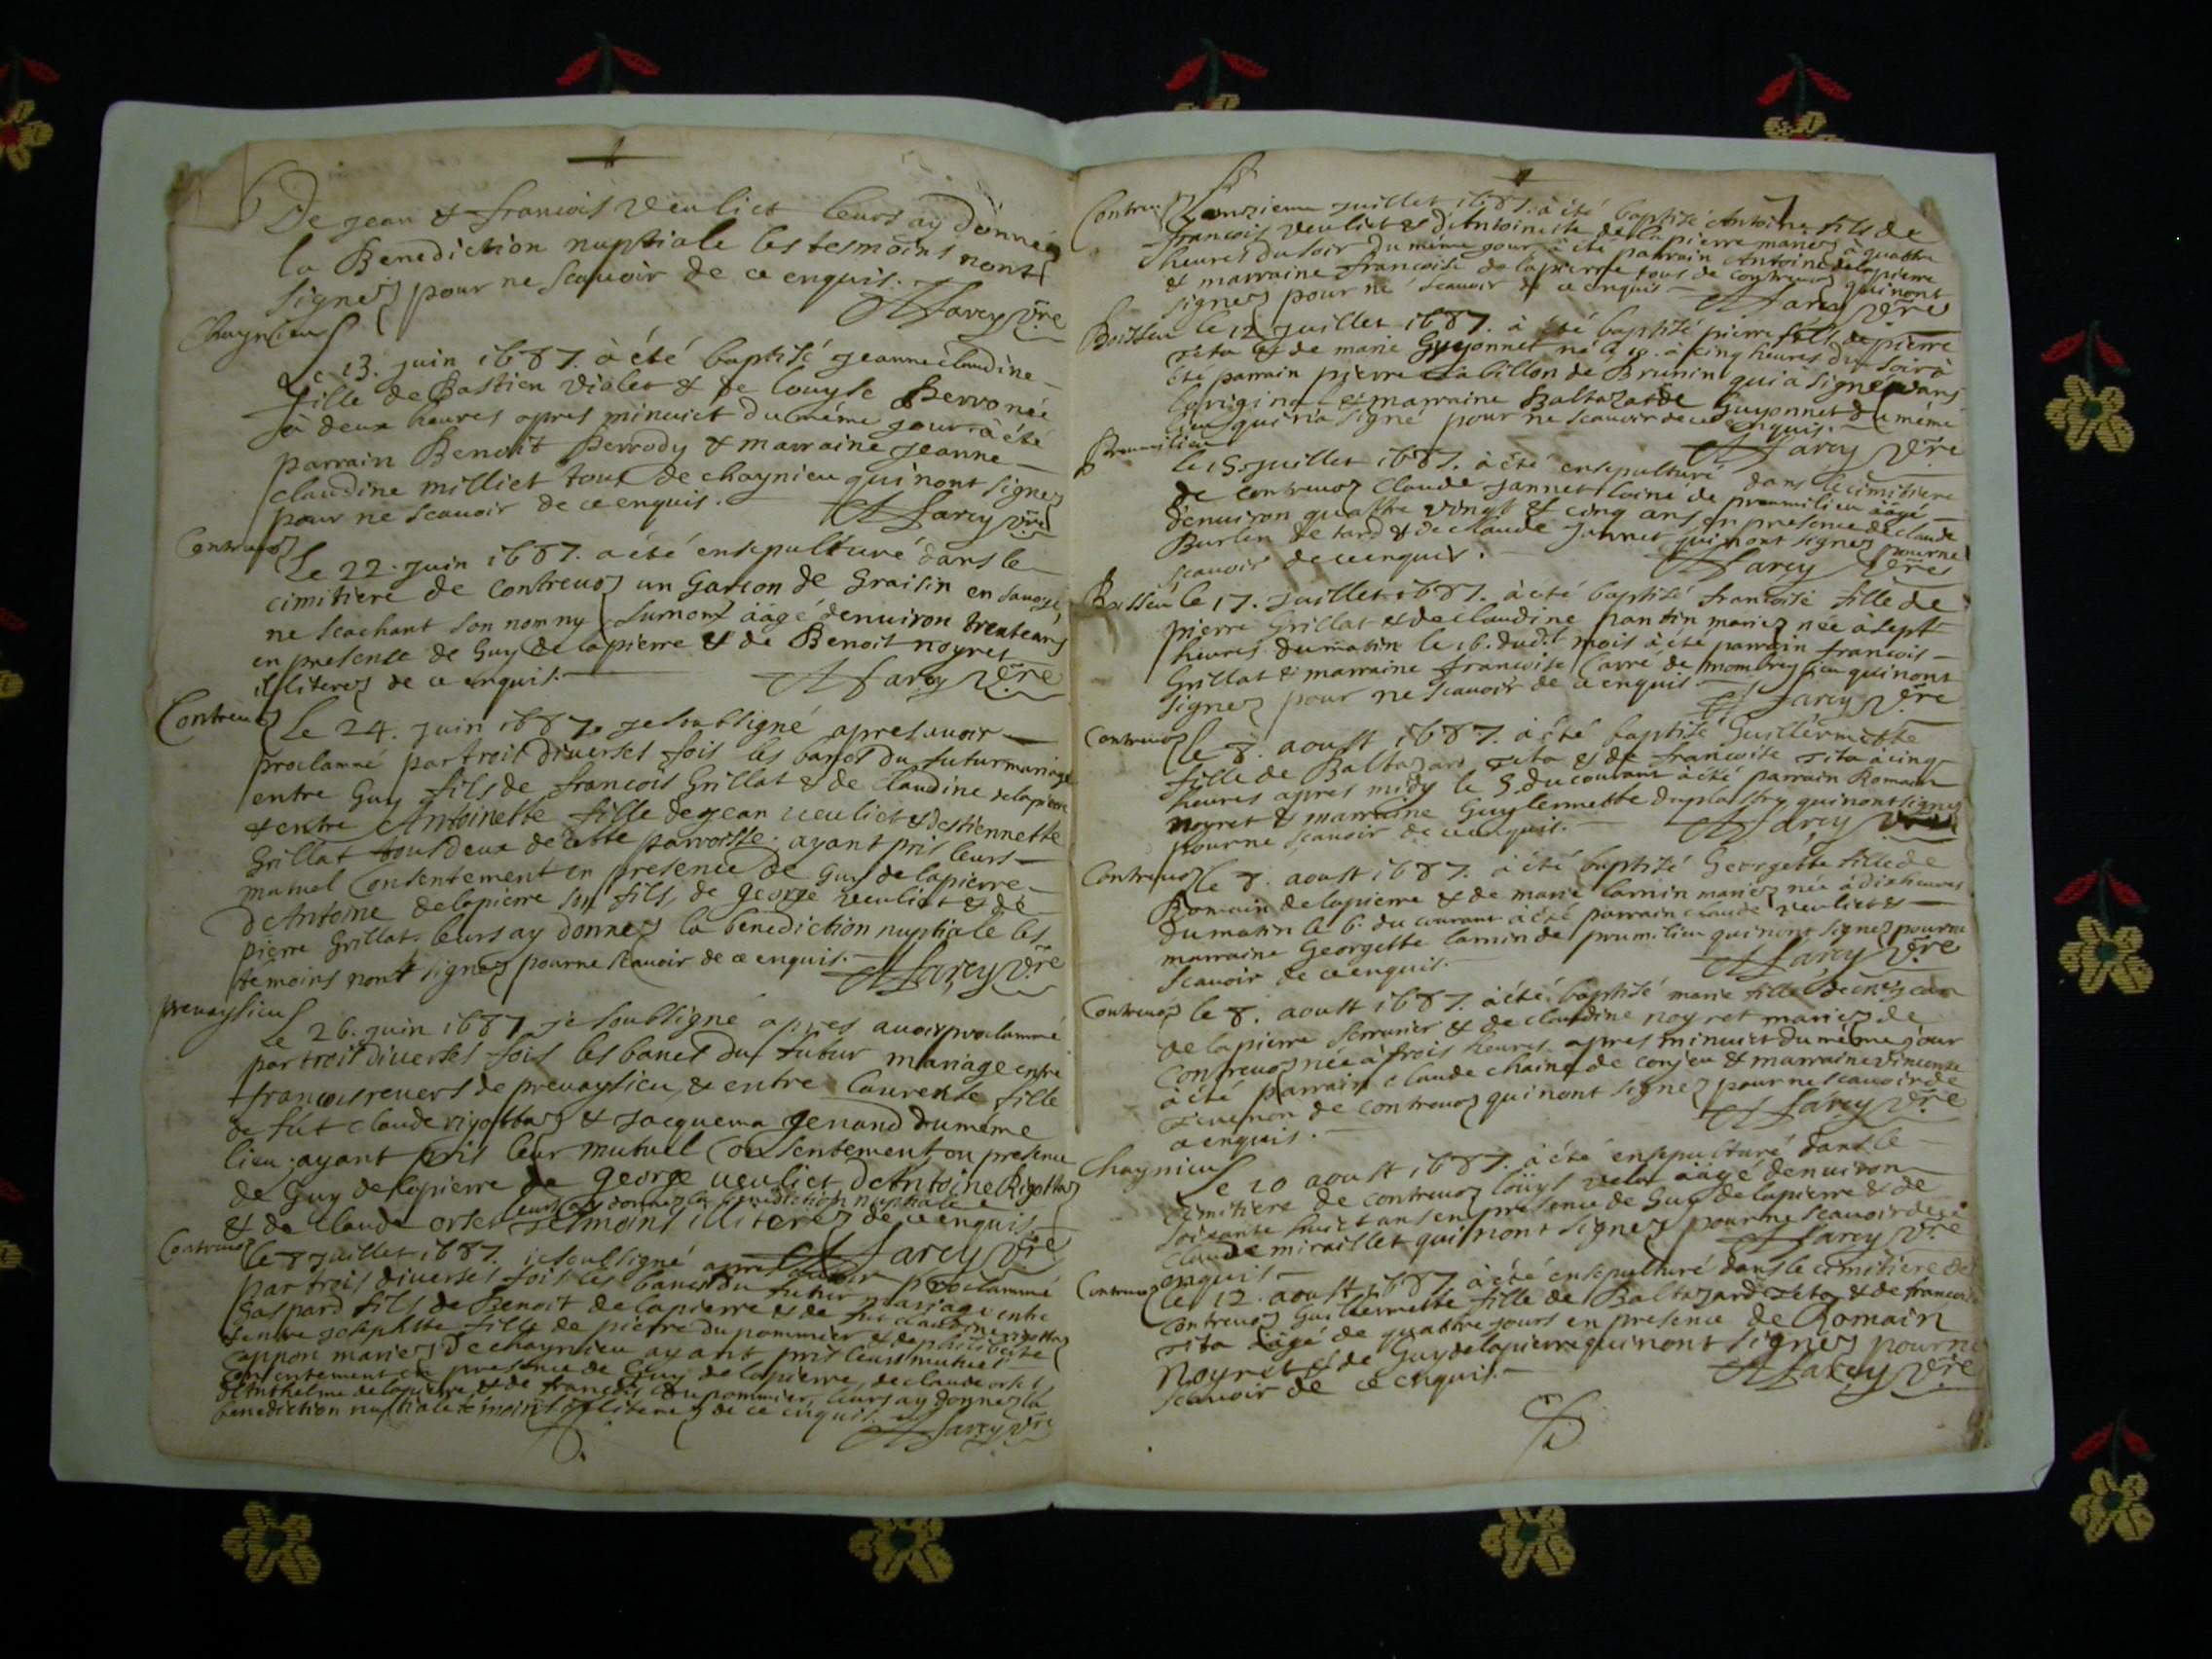 De jean & francois Veuliet leurs ay donnéz
la Benediction nuptiale les tesmoins nont
signez pour ne scauoir de ce enquis.
A farcy vre
Chaynieu
Le 13. juin 1687. à été baptisé jeanne claudine
fille de Bastien vialet & de louyse née
à deux heures apres minuict du méme jour à été
parrain Benoit Perrody & marraine jeanne
claudine milliet tous de chaynieu qui nont signez
pour ne scauoir de ce enquis.
A farcy vre
Contreuoz
Le 22. juin 1687. a été ensepulturé dans le
cimitiere de Contreuoz un Garcon de Graisin en sauoye,
ne scachant son nom ny surnom äagé denuiron trente ans
en presense de Guy delapierre & de Benoit noyret
illiterez de ce enquis.
A farcy vre
Contreuoz
Le 24. juin 1687. je soubsigné apres auoir
proclammé par trois diuerses fois les bancs du futur mariage
entre Guy fils de francois Grillat & de Claudine delapierre
& entre Antoinette fille de jean ueuliet & destiennette
Grillat tous deux de cette parroisse. ayant pris leurs
mutuel Consentement en presence de Guy de lapierre
d'Antoine delapierre son fils, de george ueuliet & de
pierre Grillat. leurs ay donnez la benediction nuptiale les
temoins nont signez pour ne scauoir de ce enquis.
A farcy vre
prenaysieu
Le 26. juin 1687 je soubsigne apres auoir proclammé
par trois diuerses fois les bancs du futur mariage entre
francois reuers de preuaysieu, & entre laurense fille
de fut claude rigottaz & jacquema genand du méme
lieu, ayant pris leur mutuel Consentement en presence
de Guy delapierre de george ueuliet d'Antoine Rigottaz
leurs ay donnez la benediction nuptiale
& de Claude orset tesmoins illiterez de ce enquis
A farcy vre
Contreuoz
le 8 juillet 1687. je soubsigné apres auoir proclammé
par trois diuerses fois les bancs du futur mariage entre
Gaspard fils de Benoit delapierre & de fut claudine rigottaz
& entre josephtte fille de pierre dupommier & de philiberte
cappon mariez de chaynieu ayant pris leurs mutuel
consentement en presence de Guy de lapierre, de claude orset,
d'Anthelme delapierre & de francois dupommier, leurs ay donnez la
benediction nuptiale temoins illiterez de ce enquis.
A farcy vre
7
Contreuoz
Le onzieme juillet 1687. à été baptisé Antoine fils de
francois Veuliet & d'Antoinette delapierre mariez à quattre
heures du soir du méme jour à été parrain Antoine delapierre
& marraine francoise de lapierre tous de contreuoz qui nont
signez pour ne scauoir de ce enquis
A farcy vre
Boissieu
le 12 juillet 1687. à été baptisé pierre fils de pierre
& de marie Guyonnet né le à cinq heures du soir à
été parrain pierre de qui à signé dans
loriginal & marraine Baltazarde Guyonnet du méme
lieu qui na signé pour ne scauoir de ce enquis.
A farcy vre
Preumilieu
le 15. juillet 1687. à été ensepulturé dans le cimitiere
de contreuoz Claude jannet lainé de preumilieu äagé
d'enuiron quattre vingt & cinq ans en presence de claude
Burlen de & de Claude jannet qui nont signez pour ne
scauoir de ce enquis.
A farcy vre
Boissieu
le 17. juillet 1687. à été baptisé francoise fille de
pierre Grillat & de claudine pantin mariez née à sept
heures du matin le 16. dudit mois à été parrain francois
Grillat & marraine francoise Carre de mombreysieu qui nont
signez pour ne scauoir de ce enquis.
A farcy vre
Contreuoz
le 8. aoust 1687. à été baptisé Guillermette
fille de Baltazard & de francoise à cinq
heures apres midy le 5. du courant à été parrain Romain
noyret & marraine Guyllermette qui nont signez
pour ne scauoir de ce enquis.
A farcy vre
Contreuoz
le 8. aoust 1687. à été baptisé Georgette fille de
Romain delapierre & de marie lamin mariez née à dix heures
du matin le 6. du courant à été parrain claude veuliet &
marraine Georgette lamin de preumilieu qui nont signez pour ne
scauoir de ce enquis.
A farcy vre
Contreuoz
le 8. aoust 1687. à été baptisé marie fille de jean
delapierre serrurier & de claudine noyret mariez de
contreuoz née à trois heures apres minuict du méme jour
à été parrain claude chaine de conjeu & marraine vincente
de contreuoz qui nont signez pour ne scauoir de
ce enquis.
A farcy vre
Chaynieu
Le 10 aoust 1687. à été ensepulturé dans le
cimitiere de contreuoz louys velat äagé denuiron
soixante huict ans en presence de Guy delapierre & de
Claude miraillet qui nont signez pour ne scauoir de ce
enquis
A farcy vre
Contreuoz
le 12. aoust 1687. à été ensepulturé dans le cimitiere de
contreuoz Guillermette fille de Baltazard & de francoise
äagé de quattre jours en presence de Romain
noyret & de Guy delapierre qui nont signez pour ne
scauoir de ce enquis.
A farcy vre